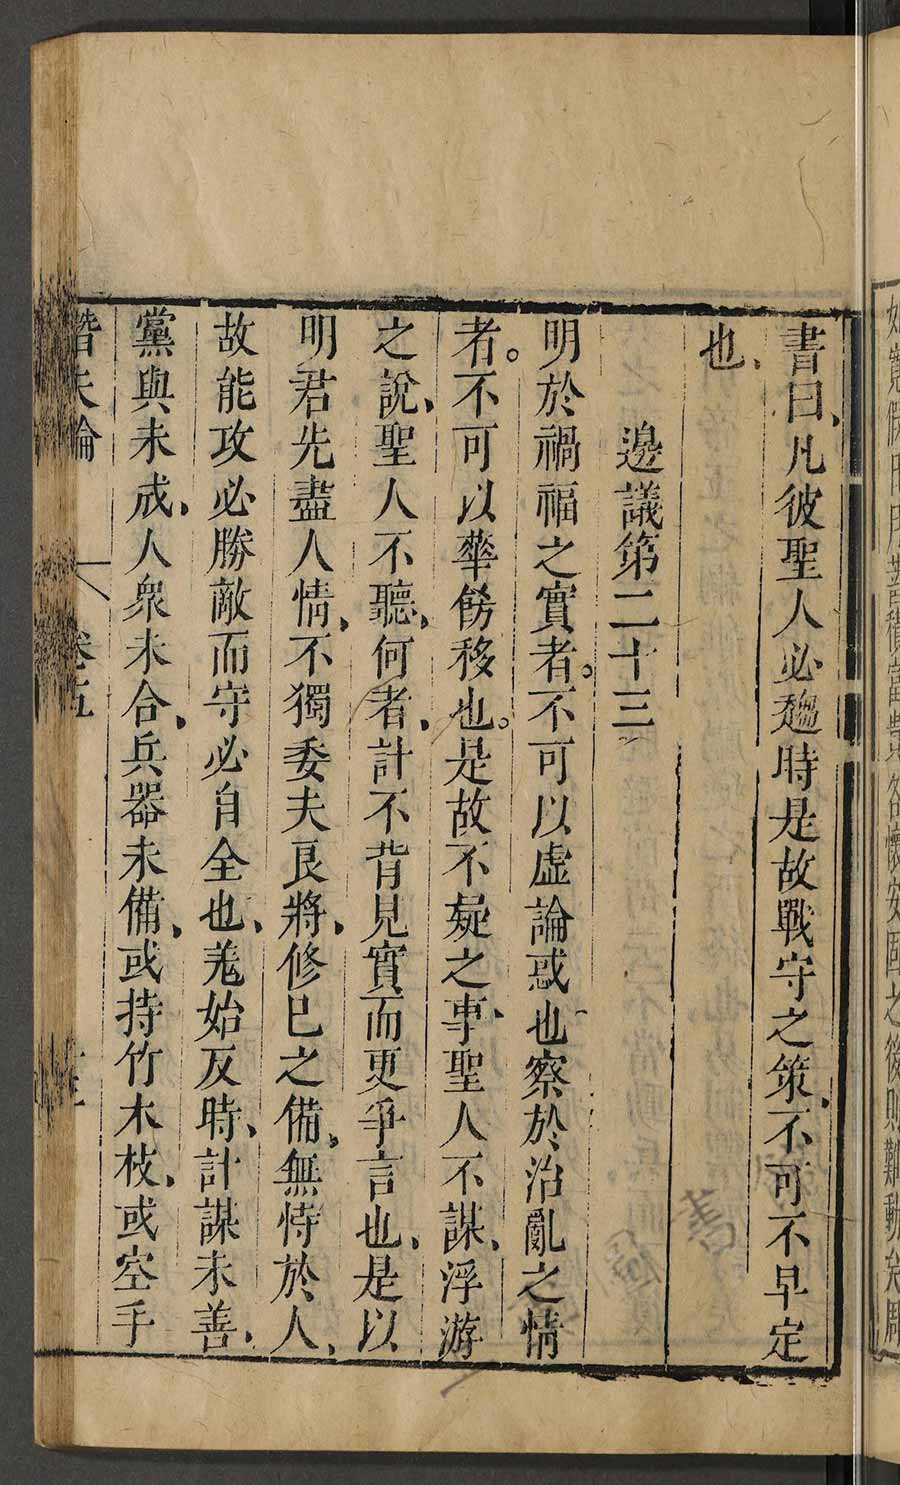 書曰、凡彼聖人必趨時是故戰守之策、不可不早定
也、
邊議第二十三
明於禍福之實者。不可以虛論惑也察於治亂之情
者。不可以華飾移也。是故不疑之事、聖人不謀、浮游
之說、聖人不聽、何者、計不背見實而更爭言也、是以
明君先盡人情、不獨委夫良將、修已之備、無恃於人、
故能攻必勝敵而守必自全也、羌始反時、計謀未善、
黨與未成、人衆未合、兵器未備、或持竹木枝、或空手
潛夫論 卷五